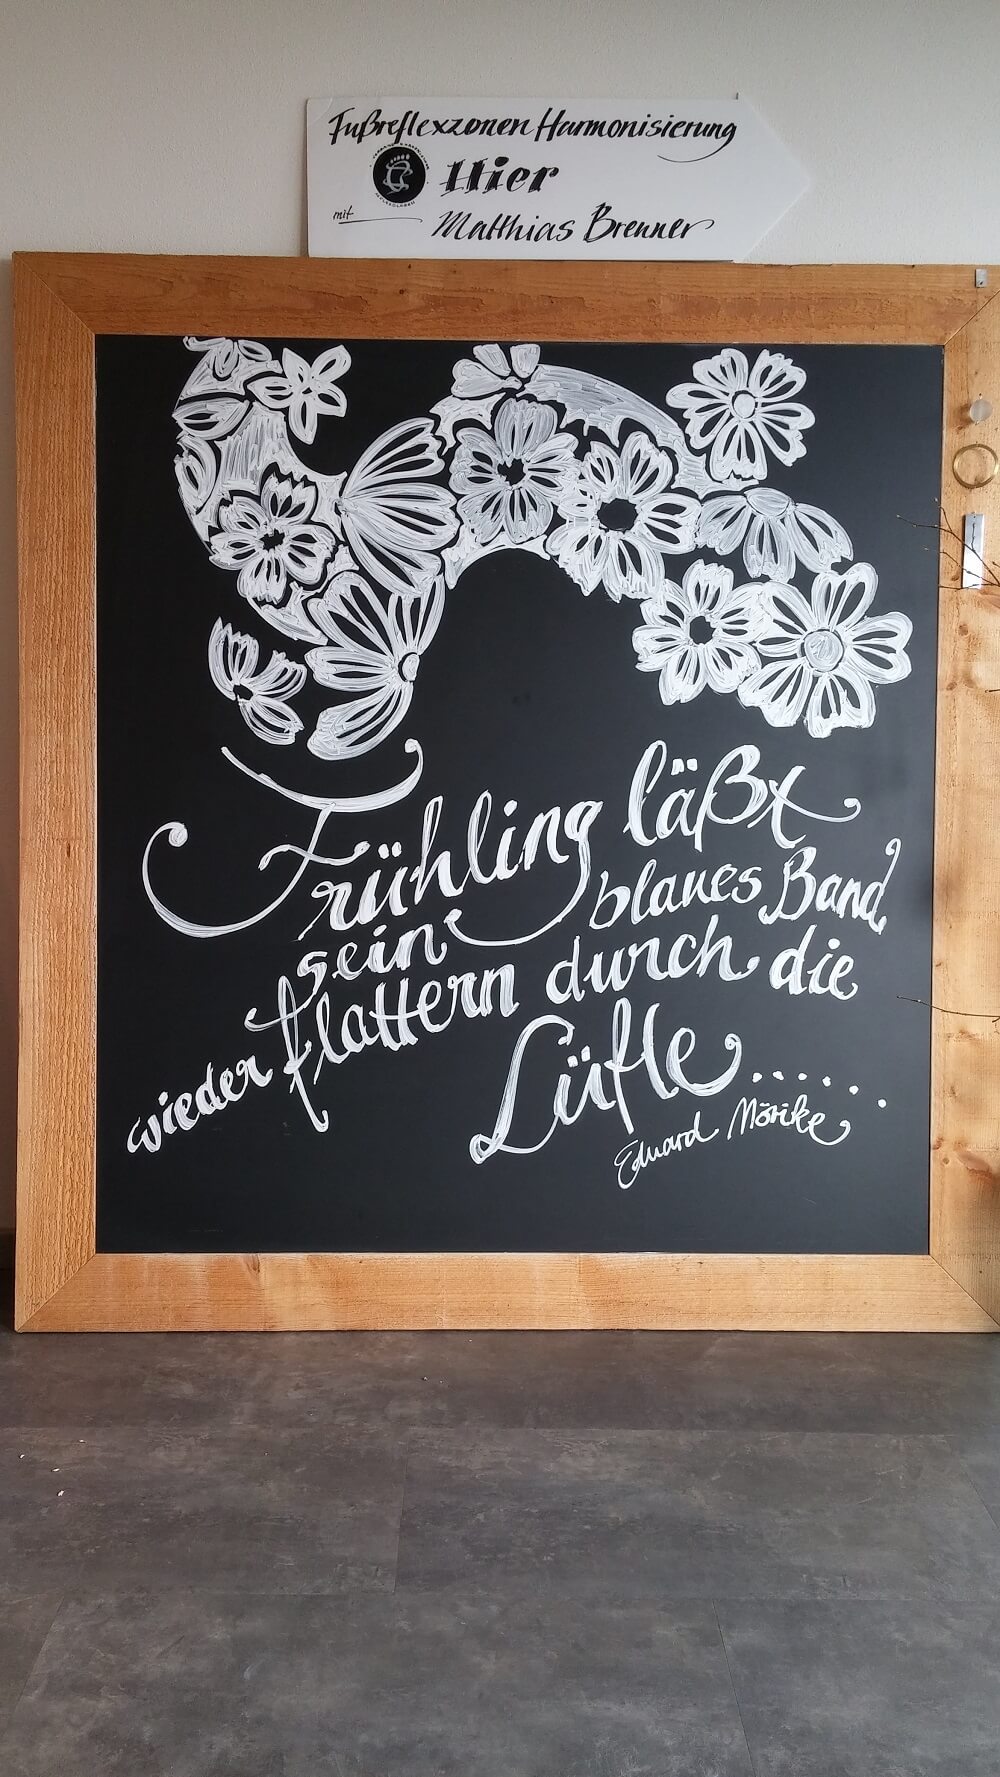 Fußreflexzonen Harmonisierung
Hier
mit Matthias Brenner
Frühling läßt
sein blaues Band
wieder flattern durch die
Lüfte.....
Eduard Mörike